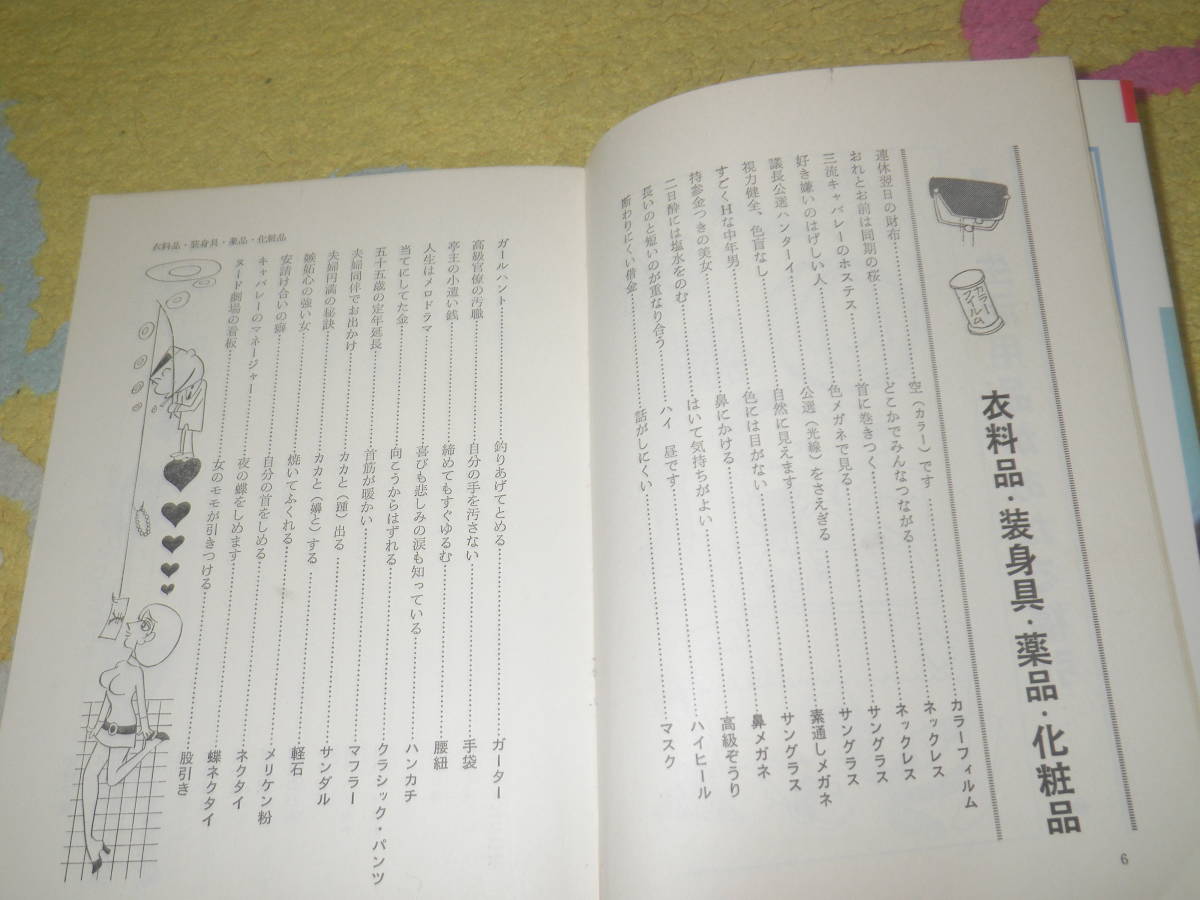 カラー
フィルム
衣料品・装身具・薬品・化粧品
連休翌日の財布……空（カラー）です……カラーフィルム
おれとお前は同期の桜……どこかでみんなつながる……ネックレス
三流キャバレーのホステス……首に巻きつく……ネックレス
好き嫌いのはげしい人……色メガネで見る……サングラス
議長公選ハンターイ……公選（光線）をさえぎる……サングラス
視力健全、色盲なし……自然に見えます……素通しメガネ
すごくHな中年男……色には目がない……サングラス
特参金つきの美女……鼻にかける……鼻メガネ
二日酔には塩水をのむ……はいて気持ちがよい……高級ぞうり
長いのと短いのが重なり合う……ハイ　昼です……ハイヒール
断わりにくい借金……話がしにくい……マスク
6
ガールハント……釣りあげてとめる……ガーター
高級官僚の汚職……自分の手を汚さない……手袋
亭主の小遣い銭……締めてもすぐゆるむ……腰紐
人生はメロドラマ……喜びも悲しみの涙も知っている……ハンカチ
当てにしてた金……向こうからはずれる……クラシック・パンツ
五十五歳の定年延長……首筋が暖かい……マフラー
夫婦同伴でお出かけ……カカと（踵）出る……サンダル
夫婦円満の秘訣……カカと（嬶と）する……軽石
嫉妬心の強い女……焼いてふくれる……メリケン粉
安請け合いの癖……自分の首をしめる……ネクタイ
キャバレーのマネージャー……夜の蝶をしめます……蝶ネクタイ
ヌード劇場の看板……女のモモが引きつける……股引き
衣料品・装身具・薬品・化粧品